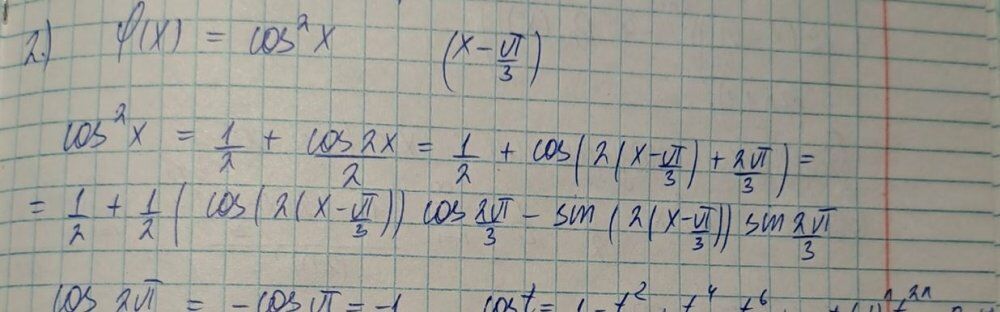 2.) φ(x) = cos²x (x - π/3)
cos²x = 1/2 + cos2x/2 = 1/2 + cos(2(x-π/3) + 2π/3) =
= 1/2 + 1/2 ( cos(2(x-π/3)) cos 2π/3 - sin (2(x-π/3)) sin 2π/3
cos 2π = -cos π = -1 cos t = 1 - t² t⁴ t⁶